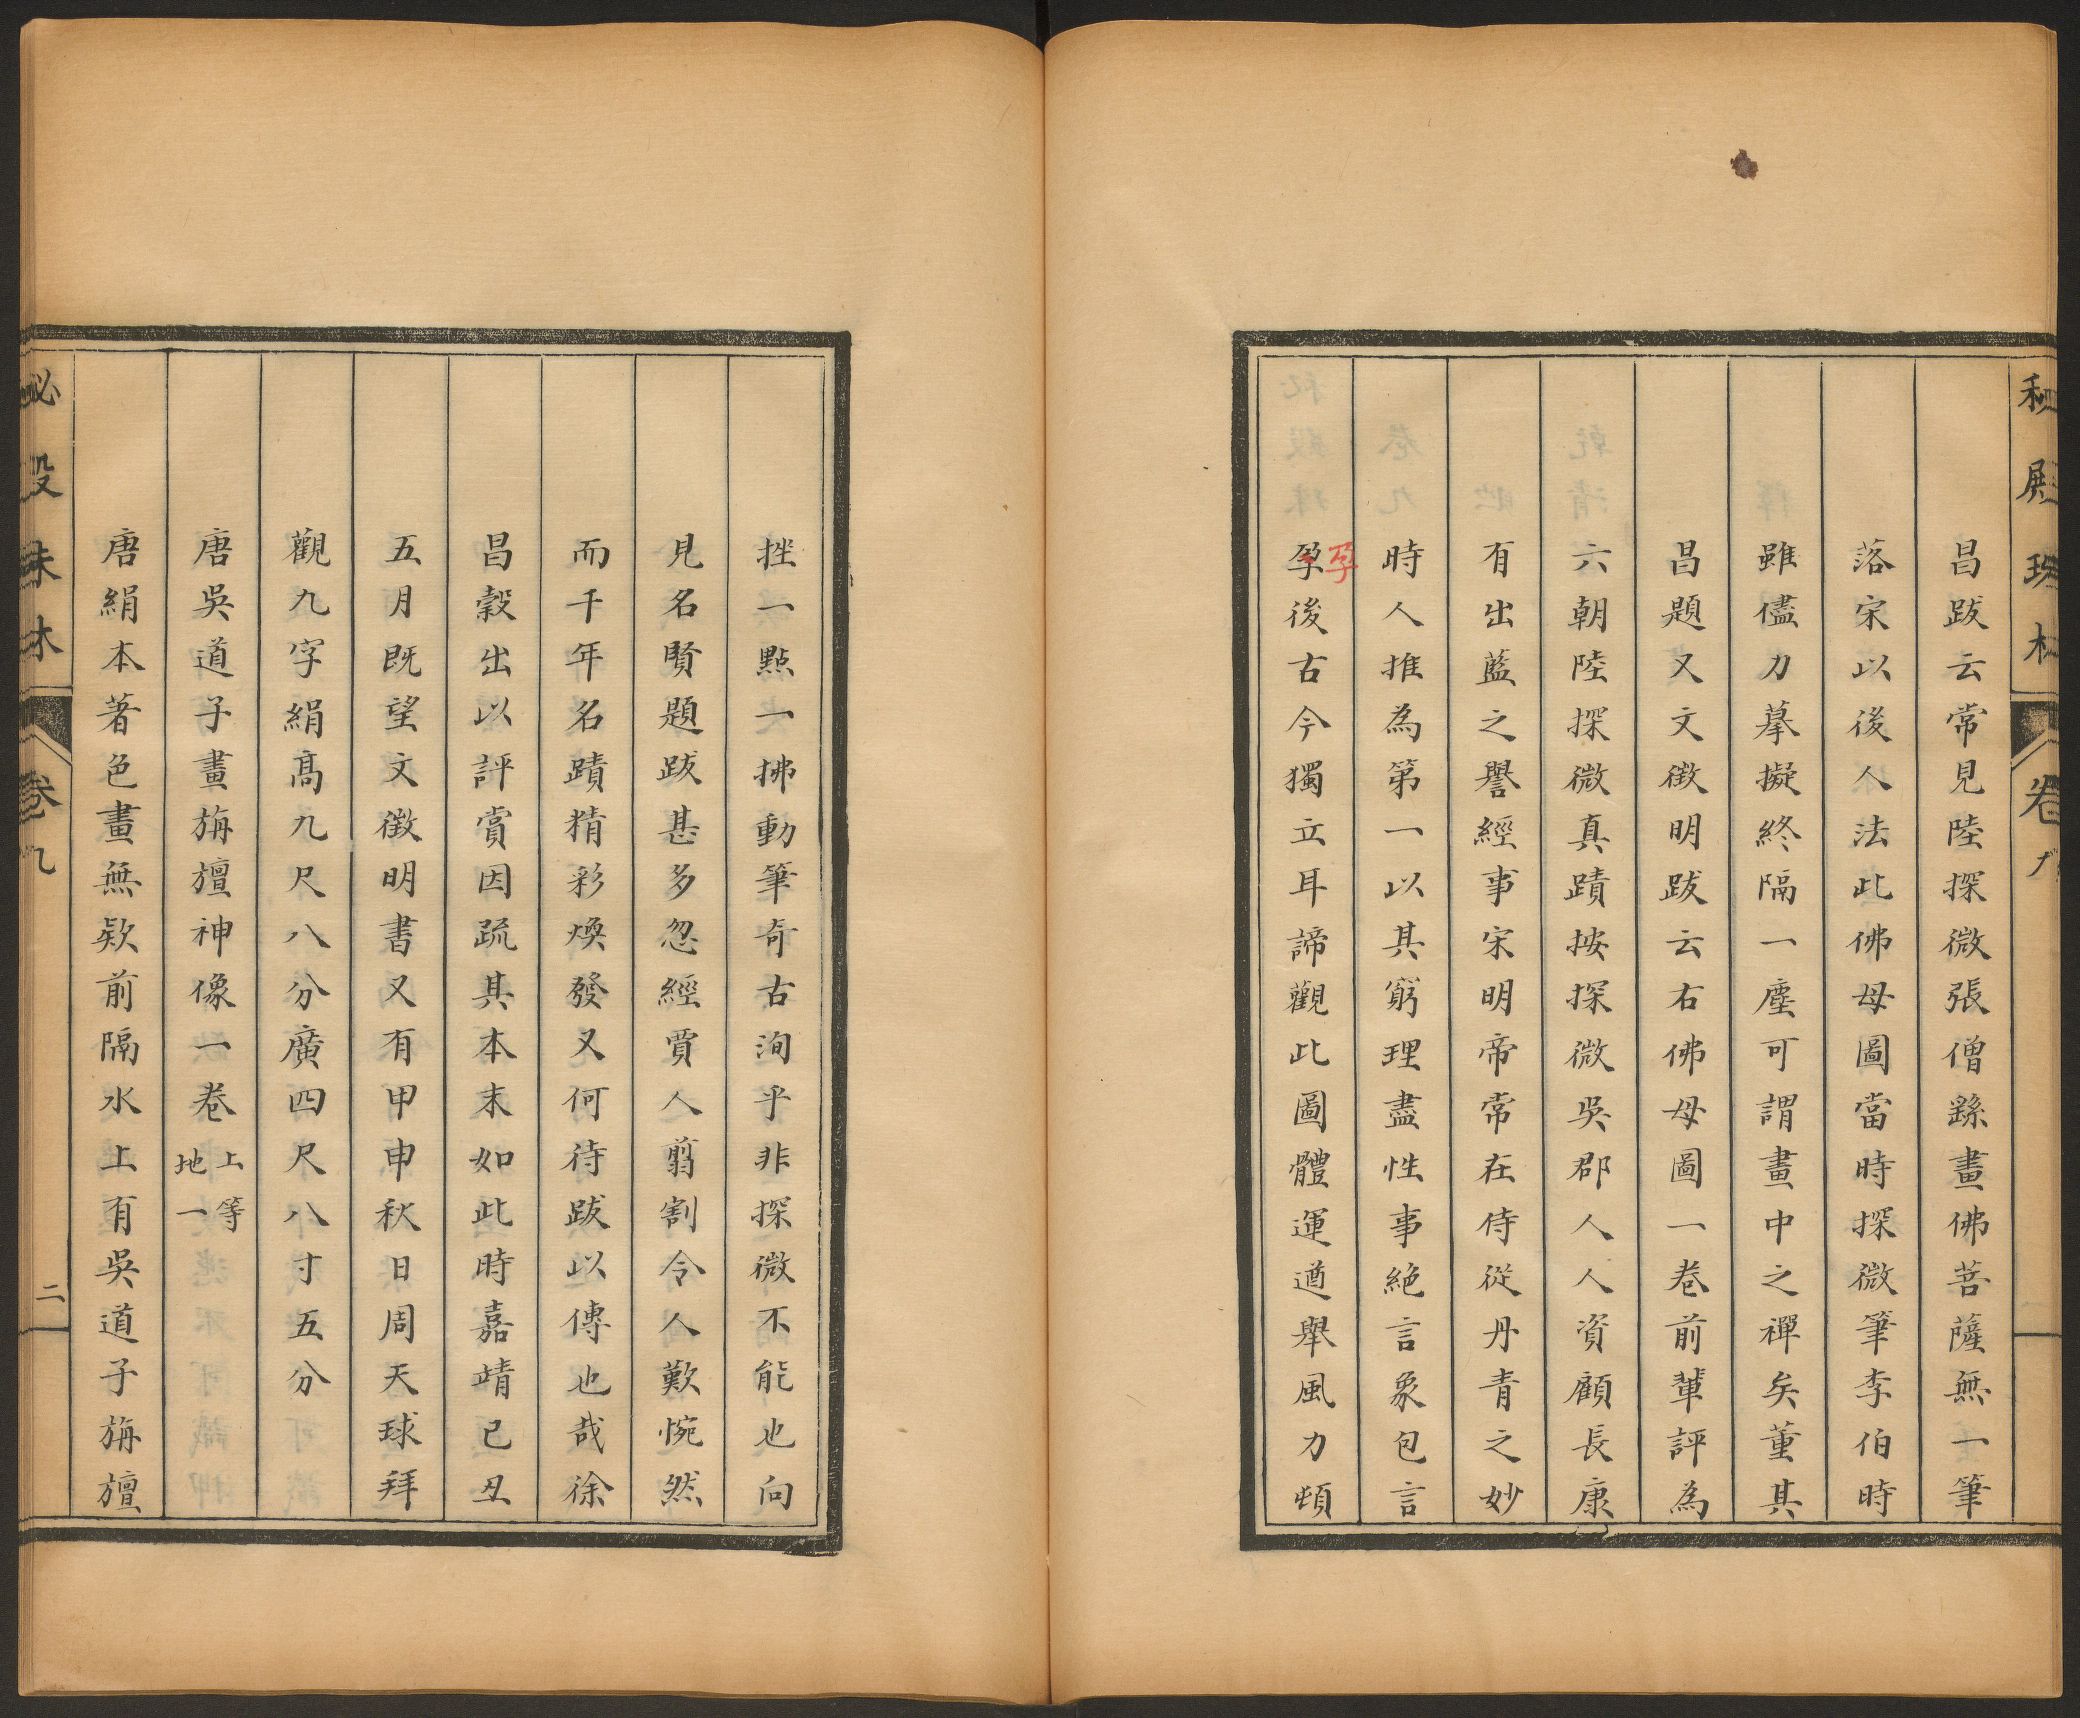 秘殿珠林 卷九
昌跋云常見陸探微張僧繇畫佛菩薩無一筆
落宋以後人法此佛母圖當時探微筆李伯時
雖儘力摹擬終隔一塵可謂畫中之禪矣董其
昌題又文徴明跋云右佛母圖一卷前輩評為
六朝陸探微真蹟按探微吳郡人人資顧長康
有出藍之譽經事宋明帝常在侍從丹青之妙
時人推為第一以其窮理盡性事絶言象包言
孕後古今獨立耳諦觀此圖體運遒舉風力頓
孕
挫一點一拂動筆奇古洵乎非探微不能也向
見名賢題跋甚多忽經賈人翦割令人歎惋然
而千年名蹟精彩煥發又何待跋以傳也哉徐
昌穀出以評賞因疏其本末如此時嘉靖己丑
五月既望文徴明書又有甲申秋日周天球拜
觀九字絹高九尺八分廣四尺八寸五分
唐吳道子畫旃檀神像一卷 上等 地一
唐絹本著色畫無欵前隔水上有吳道子旃檀
秘殿珠林 卷九 二